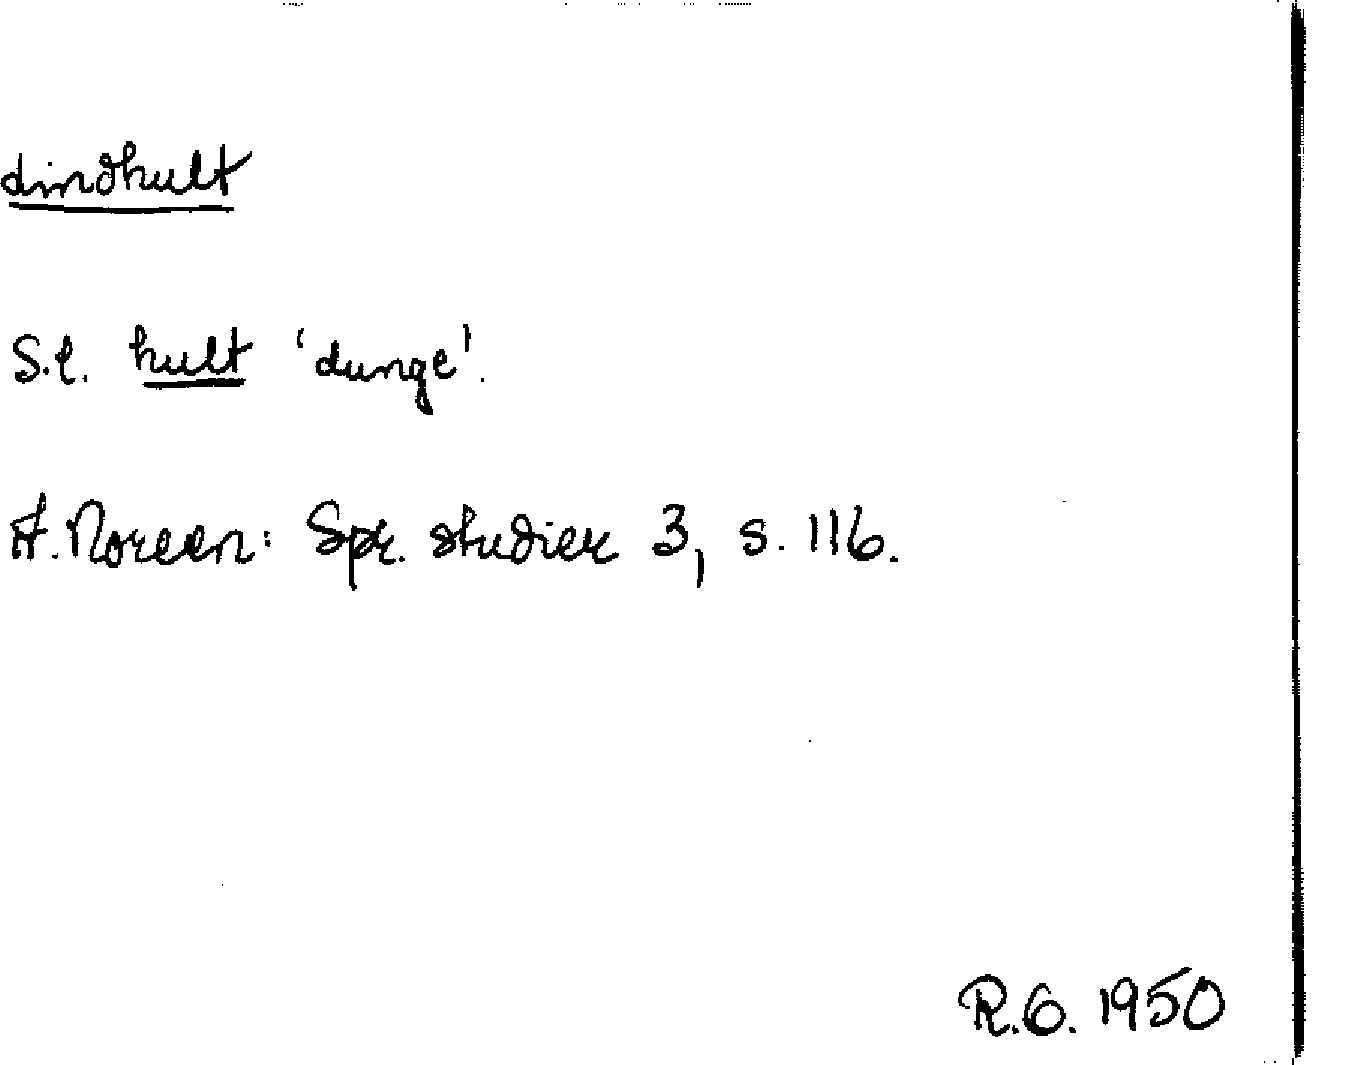 dindhult
S.l. hult 'dunge'.
A. Noreen: Spr. studier 3, s. 116.
R.G. 1950